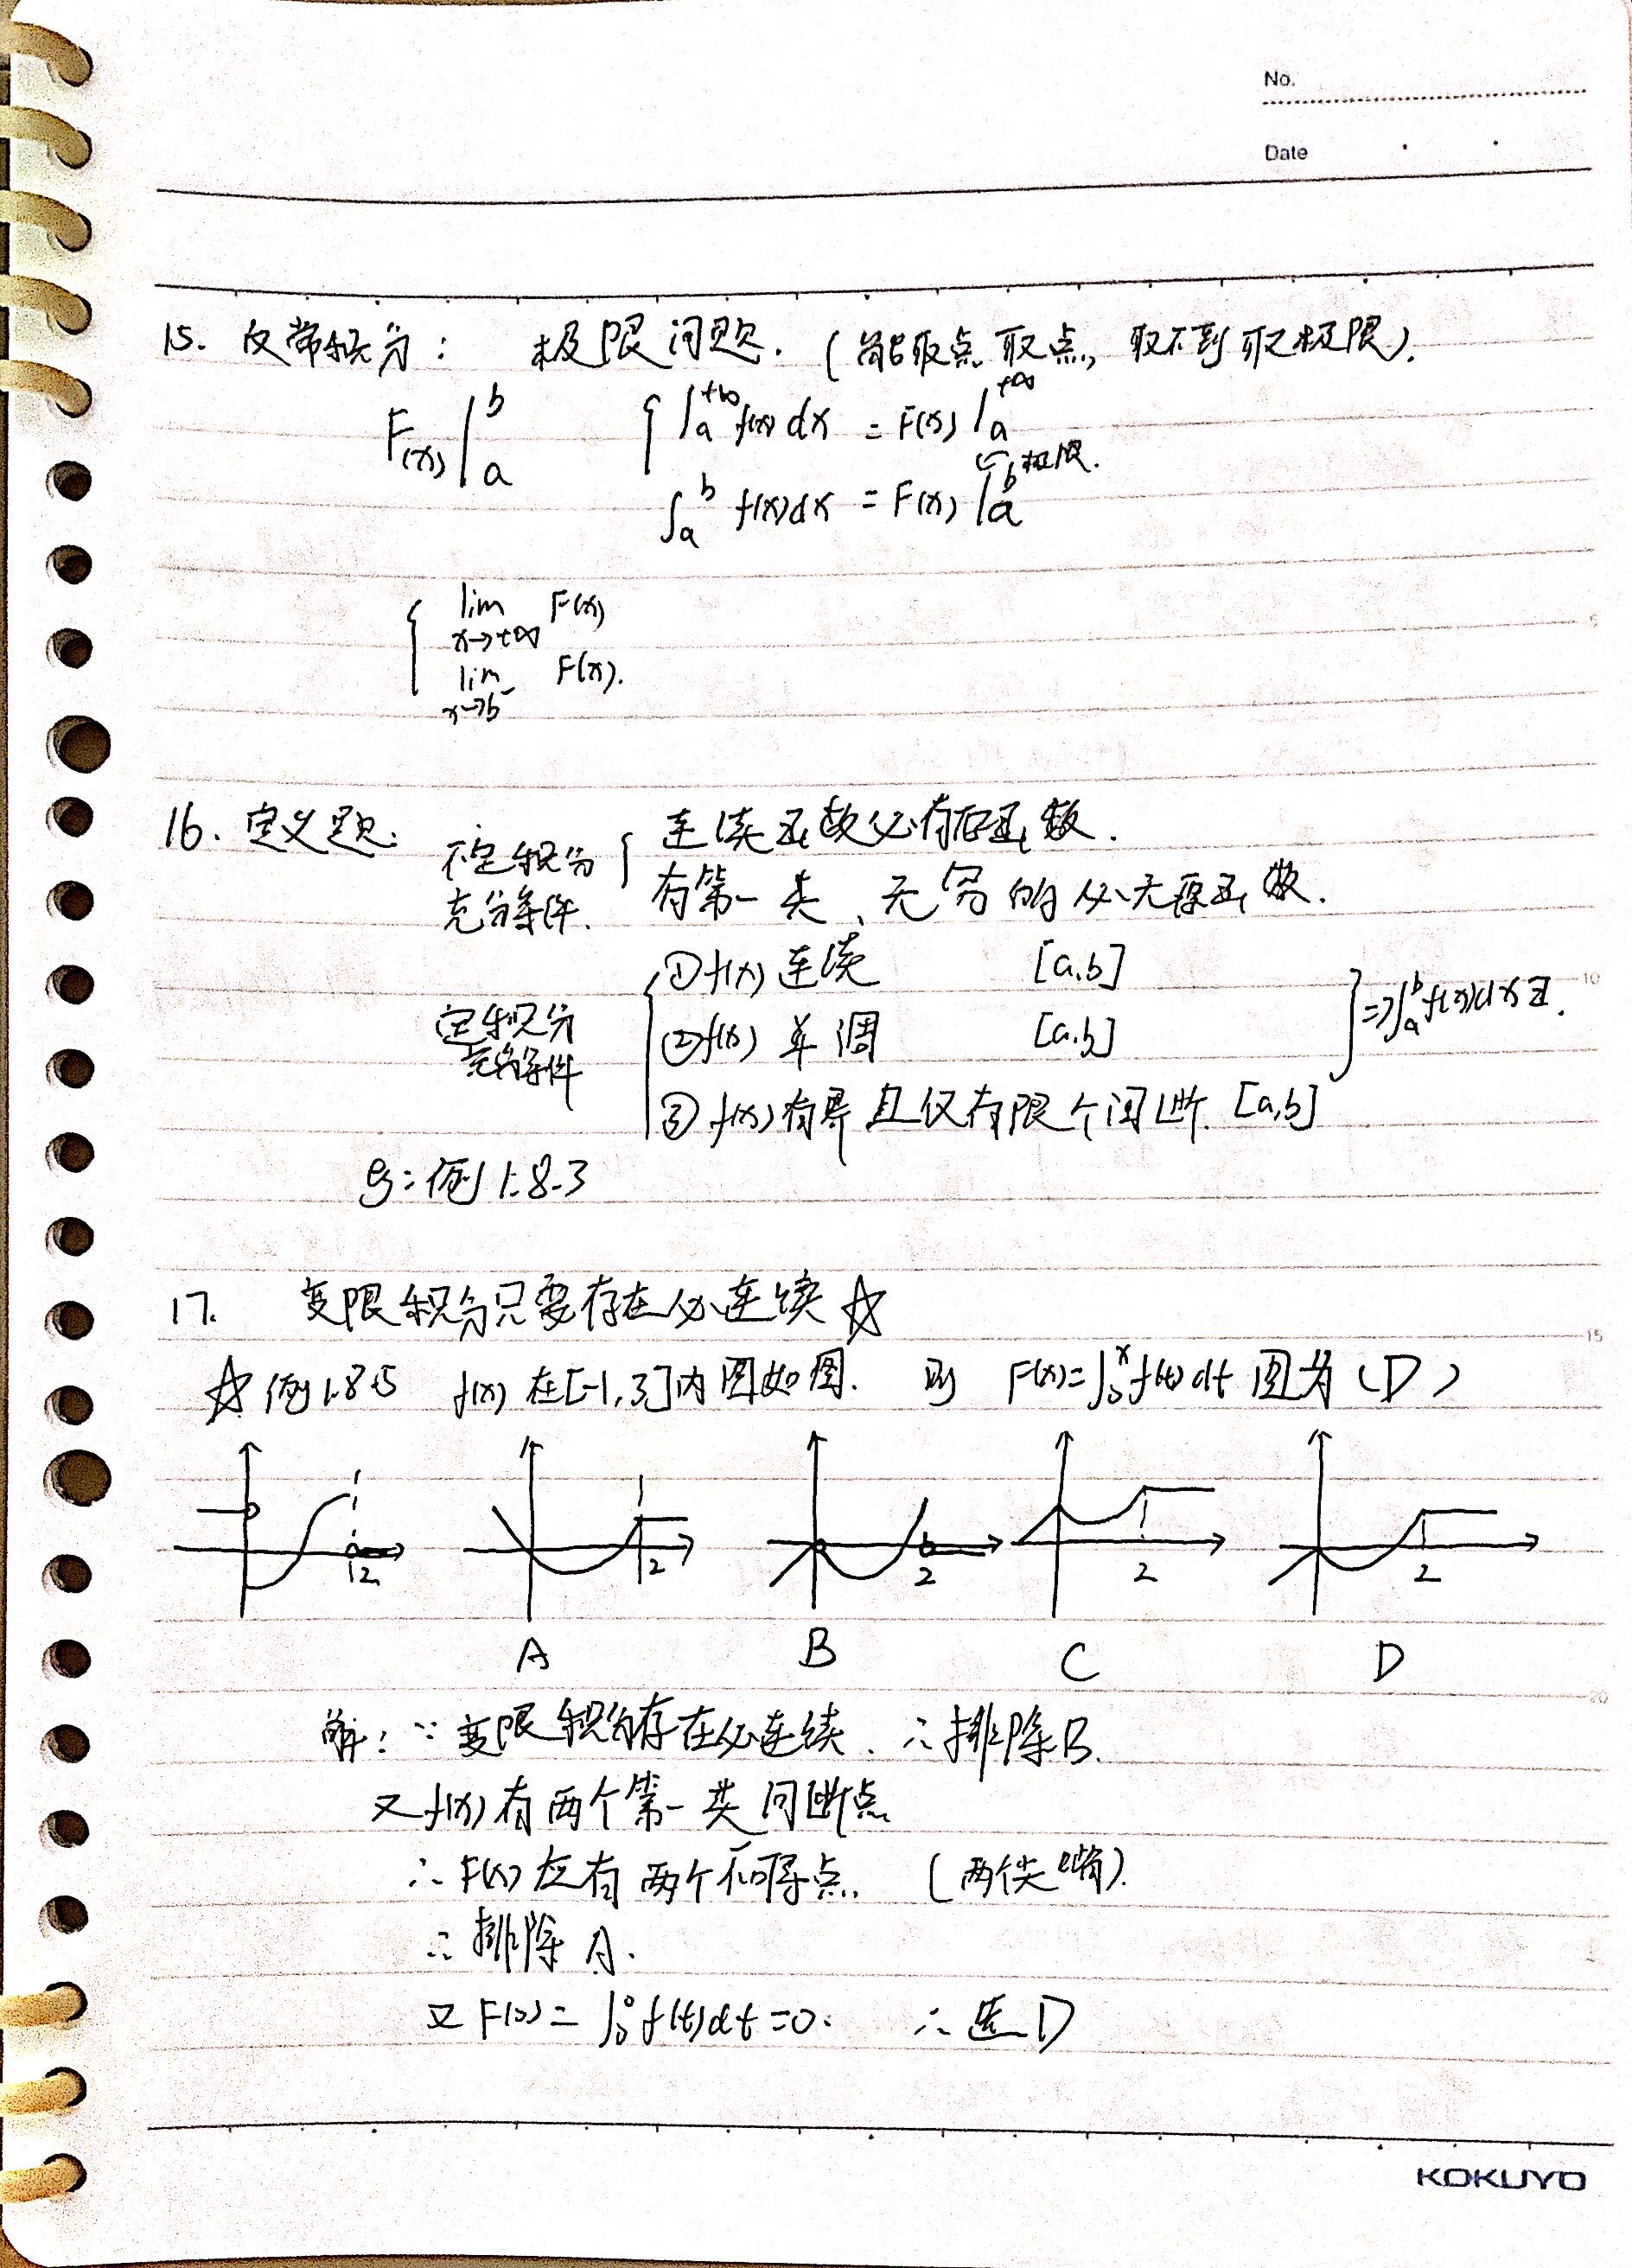 No.
Date
15. 反常积分: 极限问题. (能取点取点, 取不到取极限).
F(x)|_a^b { ∫_a^{+∞} f(x)dx = F(x)|_a^{+∞}
极限.
∫_a^b f(x)dx = F(x)|_a^b
{ lim_{x→+∞} F(x)
lim_{x→b^-} F(x).
16. 定义题: 不定积分充分条件. { 连续函数必有原函数.
有第一类、无穷的必无原函数.
定积分充分条件 { ①f(x)连续 [a,b]
②f(x)单调 [a,b] } => ∫_a^b f(x)dx ∃.
③f(x)有界且仅有限个间断. [a,b]
eg: 例1.8.3
17. 变限积分只要存在必连续 ☆
☆ 例1.8.5 f(x)在[-1,3]内图如图. 则 F(x)=∫_0^x f(t)dt 图为(D)
2 2 2 2 2
A B C D
解: ∵ 变限积分存在必连续. ∴排除B.
又f(x)有两个第一类间断点
∴ F(x)应有两个不可导点. (两个尖嘴).
∴ 排除A.
又F(0)=∫_0^0 f(t)dt=0. ∴ 选D
KOKUYO